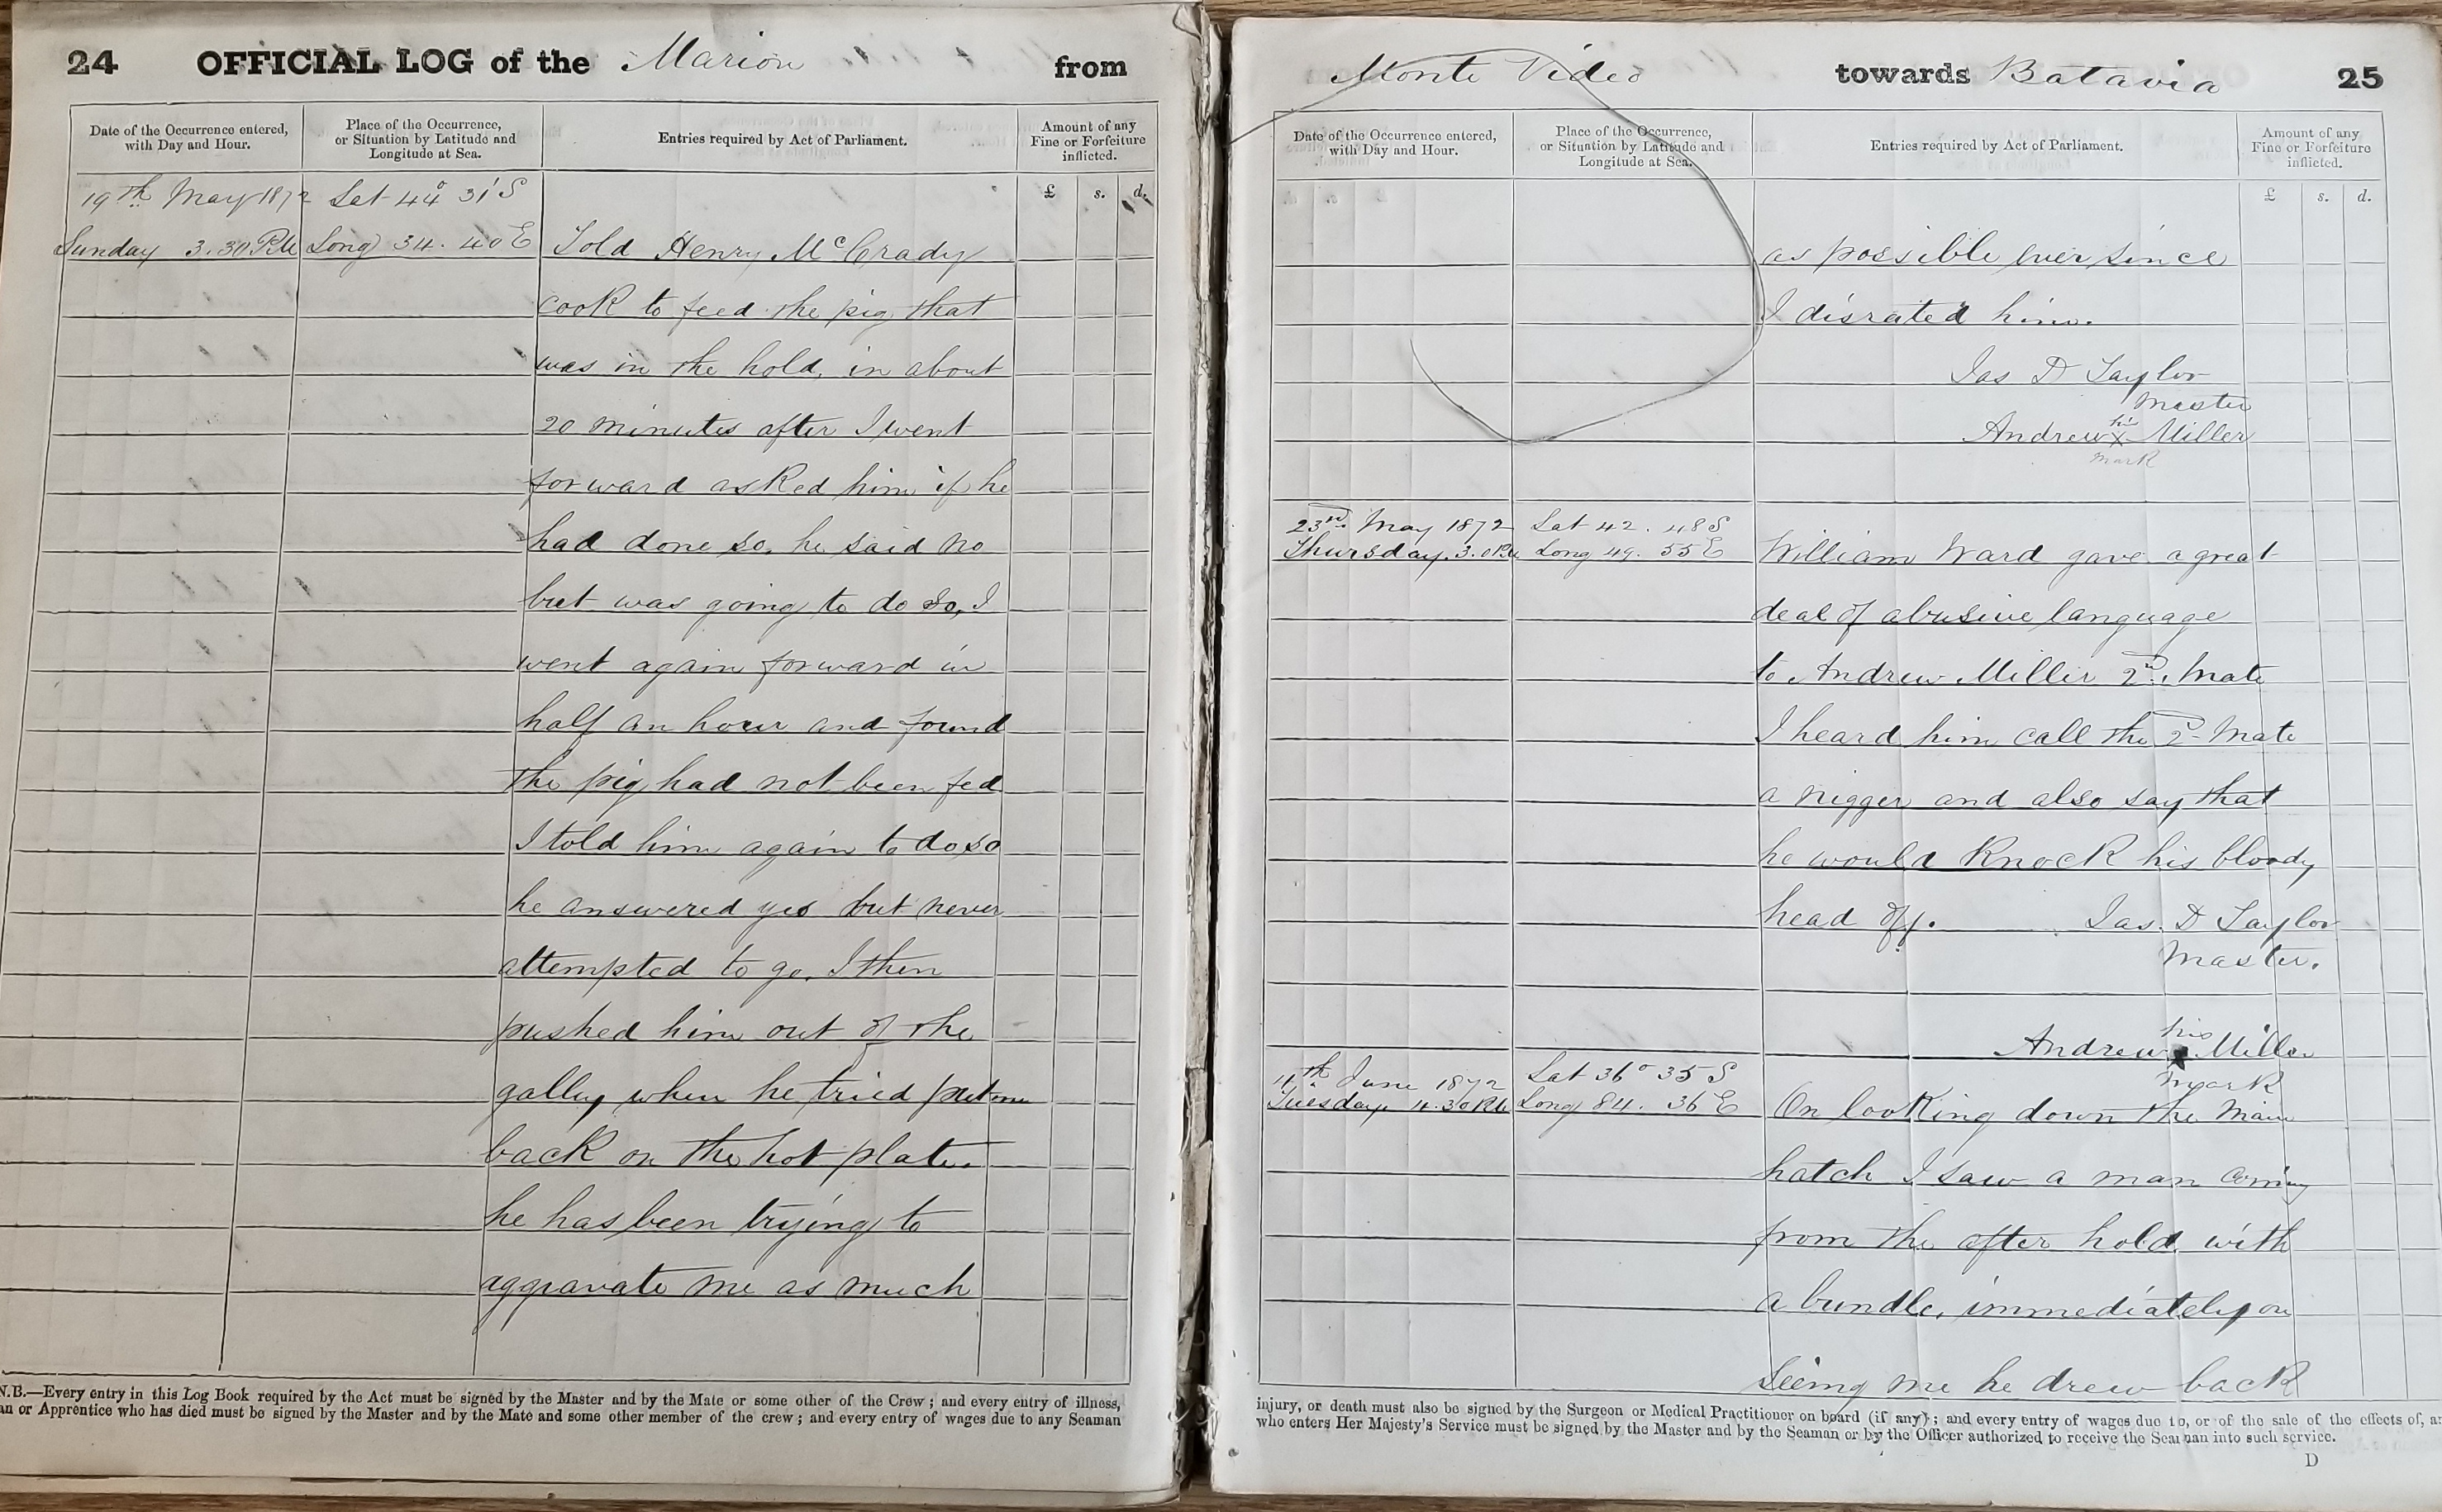 24 OFFICIAL LOG of the Marion from
Date of the Occurrence entered, with Day and Hour.
Place of the Occurrence, or Situation by Latitude and Longitude at Sea.
Entries required by Act of Parliament.
Amount of any Fine or Forfeiture inflicted.
£ s. d.
19th May 1872 Lat 44° 31' S
Sunday 3.30 PM Long 34. 40 E Told Henry McCrady
cook to feed the pig that
was in the hold, in about
20 minutes after I went
forward asked him if he
had done so. he said no
but was going to do so, I
went again forward in
half an hour and found
the pig had not been fed
I told him again to do so
he answered yes but never
attempted to go, I then
pushed him out of the
galley when he tried put me
back on the hot plate.
he has been trying to
aggravate me as much
N.B.—Every entry in this Log Book required by the Act must be signed by the Master and by the Mate or some other of the Crew; and every entry of illness,
an or Apprentice who has died must be signed by the Master and by the Mate and some other member of the crew; and every entry of wages due to any Seaman
Monte Video towards Batavia 25
Date of the Occurrence entered, with Day and Hour.
Place of the Occurrence, or Situation by Latitude and Longitude at Sea.
Entries required by Act of Parliament.
Amount of any Fine or Forfeiture inflicted.
£ s. d.
as possible ever since
I disrated him.
Jas D Taylor
Master
his
Andrew X Miller
mark
23rd May 1872 Lat 42. 48 S
Thursday 3.0 PM Long 49. 55 E William Ward gave a great
deal of abusive language
to Andrew Miller 2nd Mate
I heard him call the 2d Mate
a nigger and also say that
he would knock his bloody
head off. Jas. D Taylor
Master.
his
Andrew X Miller
mark
11th June 1872 Lat 36° 35 S
Tuesday 4.30 PM Long 84. 36 E On looking down the Main
hatch I saw a man coming
from the after hold with
a bundle, immediately on
seeing me he drew back
injury, or death must also be signed by the Surgeon or Medical Practitioner on board (if any); and every entry of wages due to, or of the sale of the effects of, an
who enters Her Majesty's Service must be signed by the Master and by the Seaman or by the Officer authorized to receive the Seaman into such service.
D